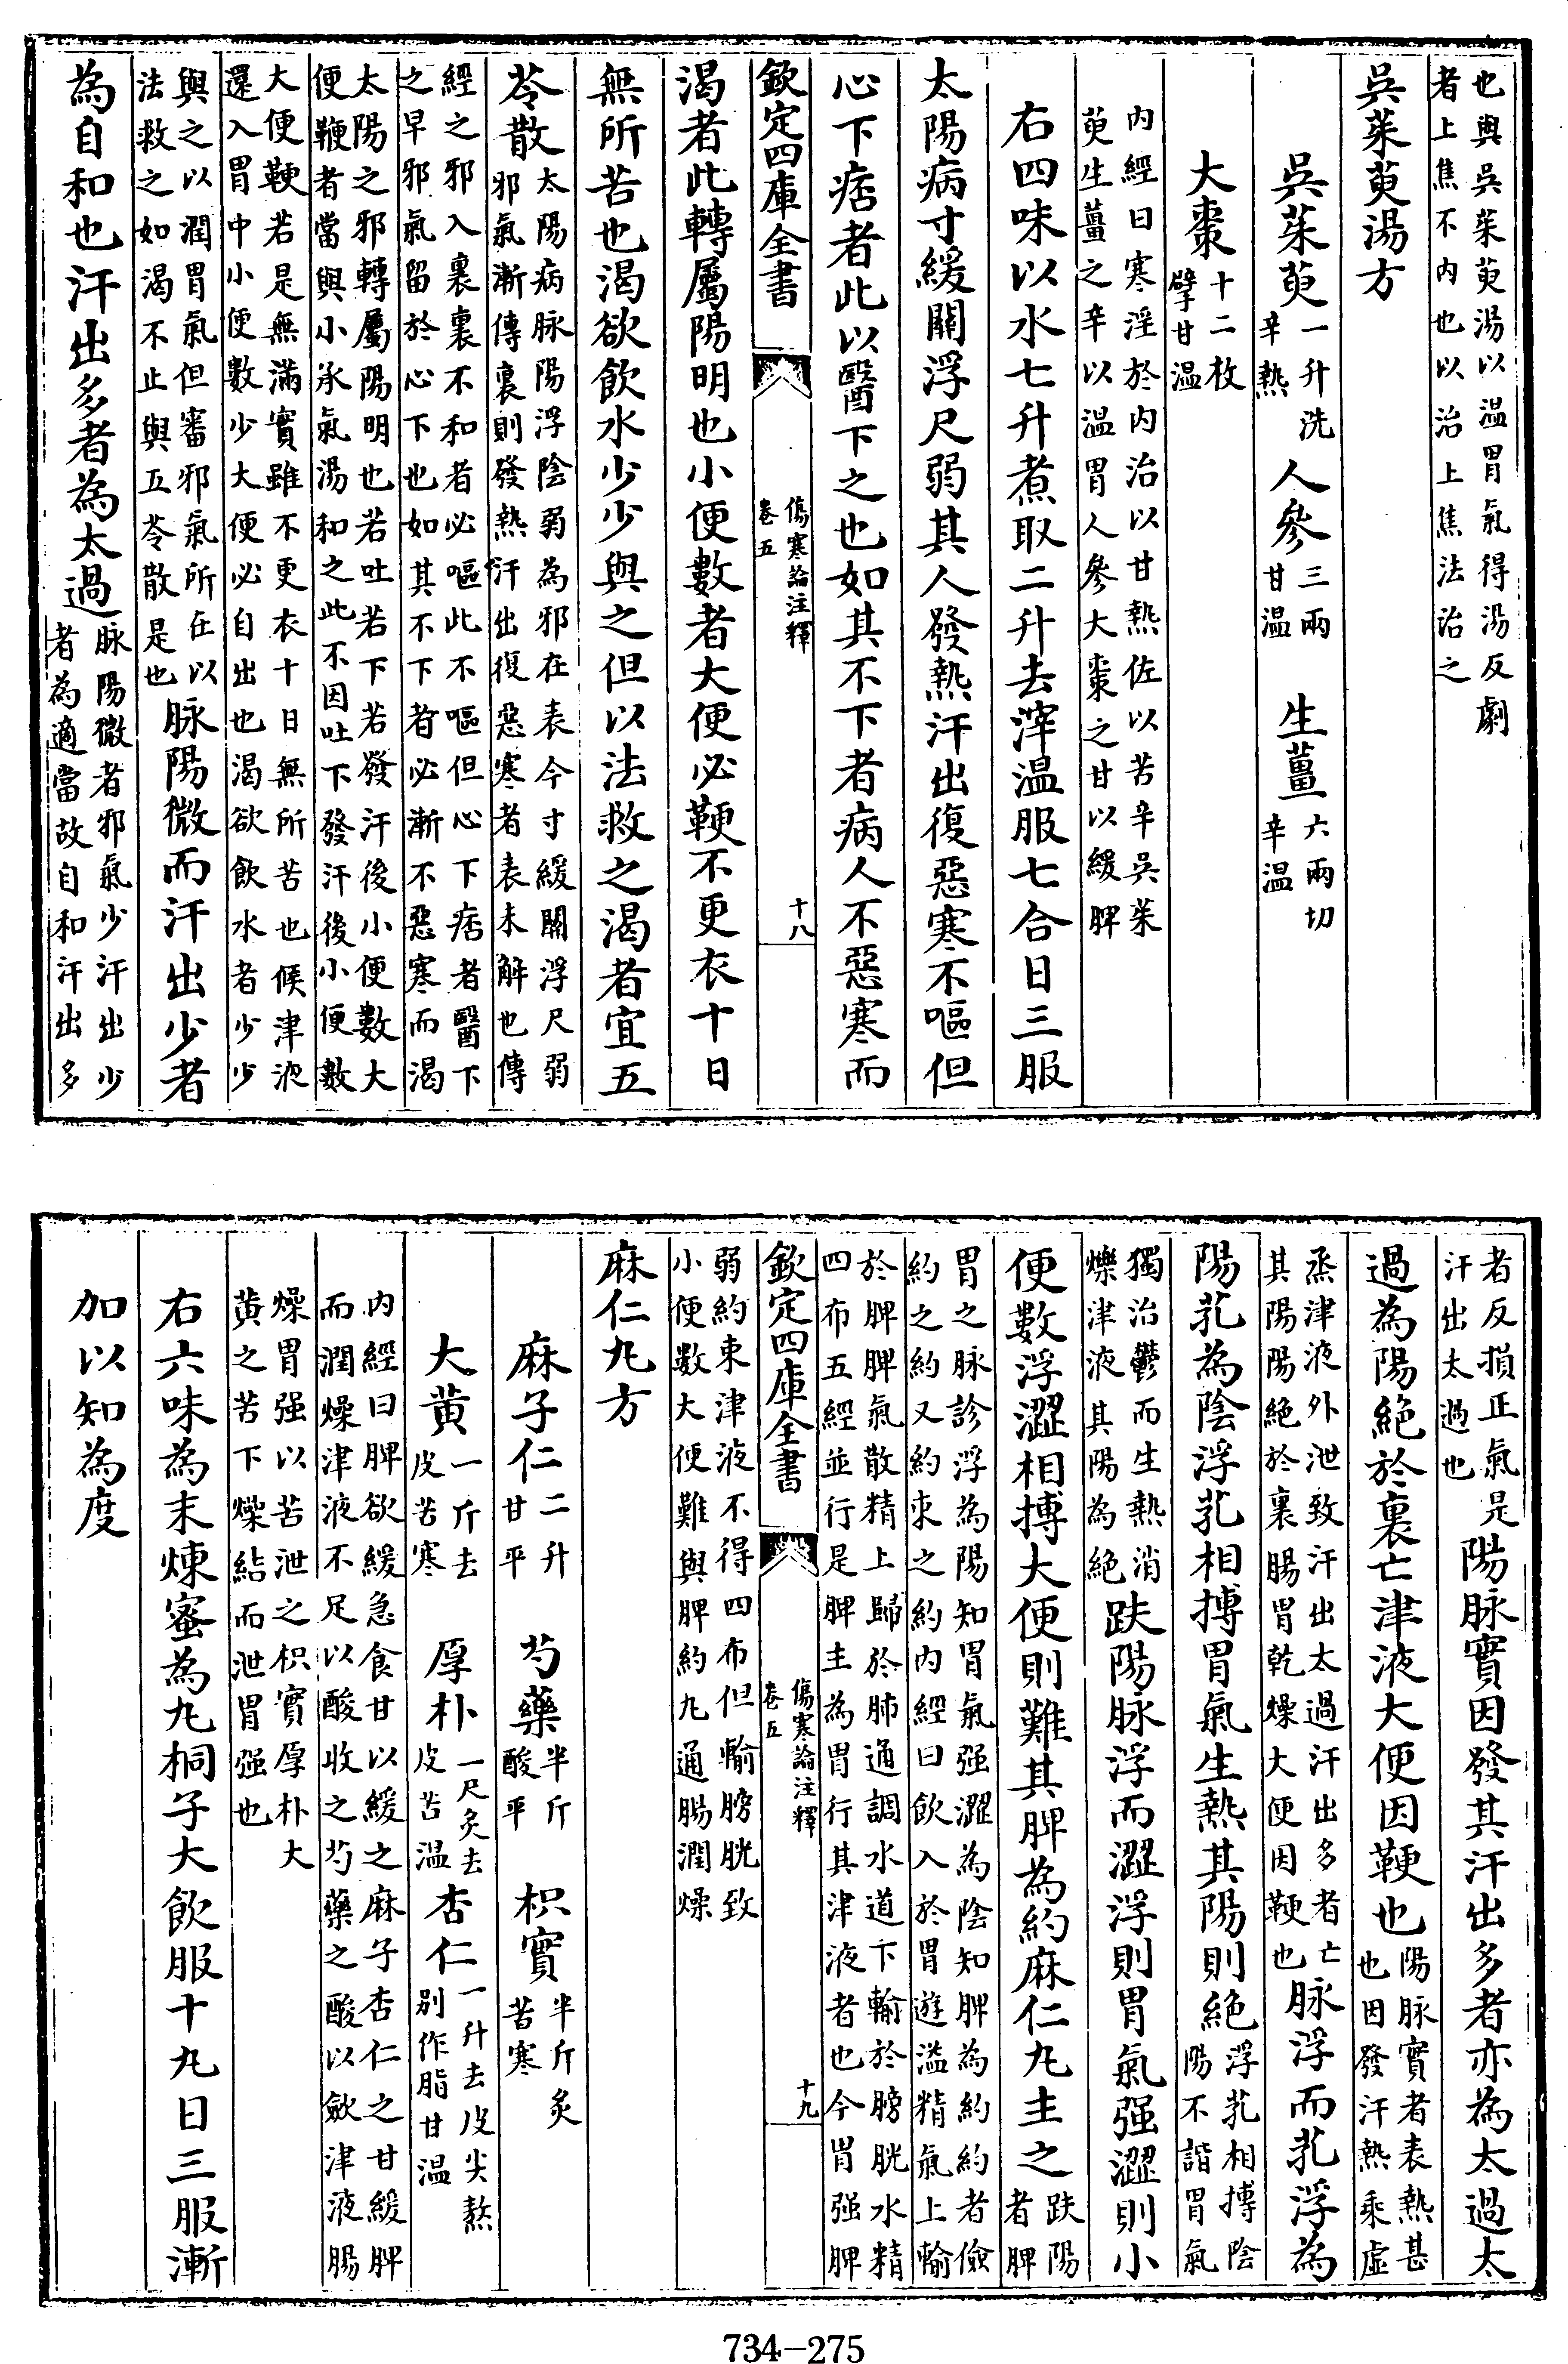 也與吳茱萸湯以温胃氣得湯反劇
者上焦不内也以治上焦法治之
吳茱萸湯方
吳茱萸一升洗辛熱 人參三兩甘温 生薑六兩切辛温
大棗十二枚擘甘温
内經曰寒淫於内治以甘熱佐以苦辛吳茱
萸生薑之辛以温胃人參大棗之甘以緩脾
右四味以水七升煮取二升去滓温服七合日三服
太陽病寸緩關浮尺弱其人發熱汗出復惡寒不嘔但
心下痞者此以醫下之也如其不下者病人不惡寒而
欽定四庫全書 傷寒論注釋 卷五 十八
渴者此轉屬陽明也小便數者大便必鞕不更衣十日
無所苦也渴欲飲水少少與之但以法救之渴者宜五
苓散太陽病脉陽浮陰弱為邪在表今寸緩關浮尺弱
邪氣漸傳裏則發熱汗出復惡寒者表未解也傳
經之邪入裏裏不和者必嘔此不嘔但心下痞者醫下
之早邪氣留於心下也如其不下者必漸不惡寒而渴
太陽之邪轉屬陽明也若吐若下若發汗後小便數大
便鞕者當與小承氣湯和之此不因吐下發汗後小便數
大便鞕若是無滿實雖不更衣十日無所苦也候津液
還入胃中小便數少大便必自出也渴欲飲水者少少
與之以潤胃氣但審邪氣所在以
法救之如渴不止與五苓散是也脉陽微而汗出少者
為自和也汗出多者為太過脉陽微者邪氣少汗出少
者為適當故自和汗出多
者反損正氣是
汗出太過也陽脉實因發其汗出多者亦為太過太
過為陽絕於裏亡津液大便因鞕也陽脉實者表熱甚
也因發汗熱乘虛
烝津液外泄致汗出太過汗出多者亡
其陽陽絕於裏腸胃乾燥大便因鞕也脉浮而芤浮為
陽芤為陰浮芤相搏胃氣生熱其陽則絕浮芤相搏陰
陽不諧胃氣
獨治鬱而生熱消
爍津液其陽為絕趺陽脉浮而澀浮則胃氣强澀則小
便數浮澀相搏大便則難其脾為約麻仁丸主之趺陽
者脾
胃之脉診浮為陽知胃氣强澀為陰知脾為約約者儉
約之約又約束之約内經曰飲入於胃遊溢精氣上輸
於脾脾氣散精上歸於肺通調水道下輸於膀胱水精
四布五經並行是脾主為胃行其津液者也今胃强脾
欽定四庫全書 傷寒論注釋 卷五 十九
弱約束津液不得四布但輸膀胱致
小便數大便難與脾約丸通腸潤燥
麻仁丸方
麻子仁二升甘平 芍藥半斤酸平 枳實半斤炙苦寒
大黄一斤去皮苦寒 厚朴一尺炙去皮苦温 杏仁一升去皮尖熬别作脂甘温
内經曰脾欲緩急食甘以緩之麻子杏仁之甘緩脾
而潤燥津液不足以酸收之芍藥之酸以斂津液腸
燥胃强以苦泄之枳實厚朴大
黄之苦下燥結而泄胃强也
右六味為末煉蜜為丸桐子大飲服十丸日三服漸
加以知為度
734-275